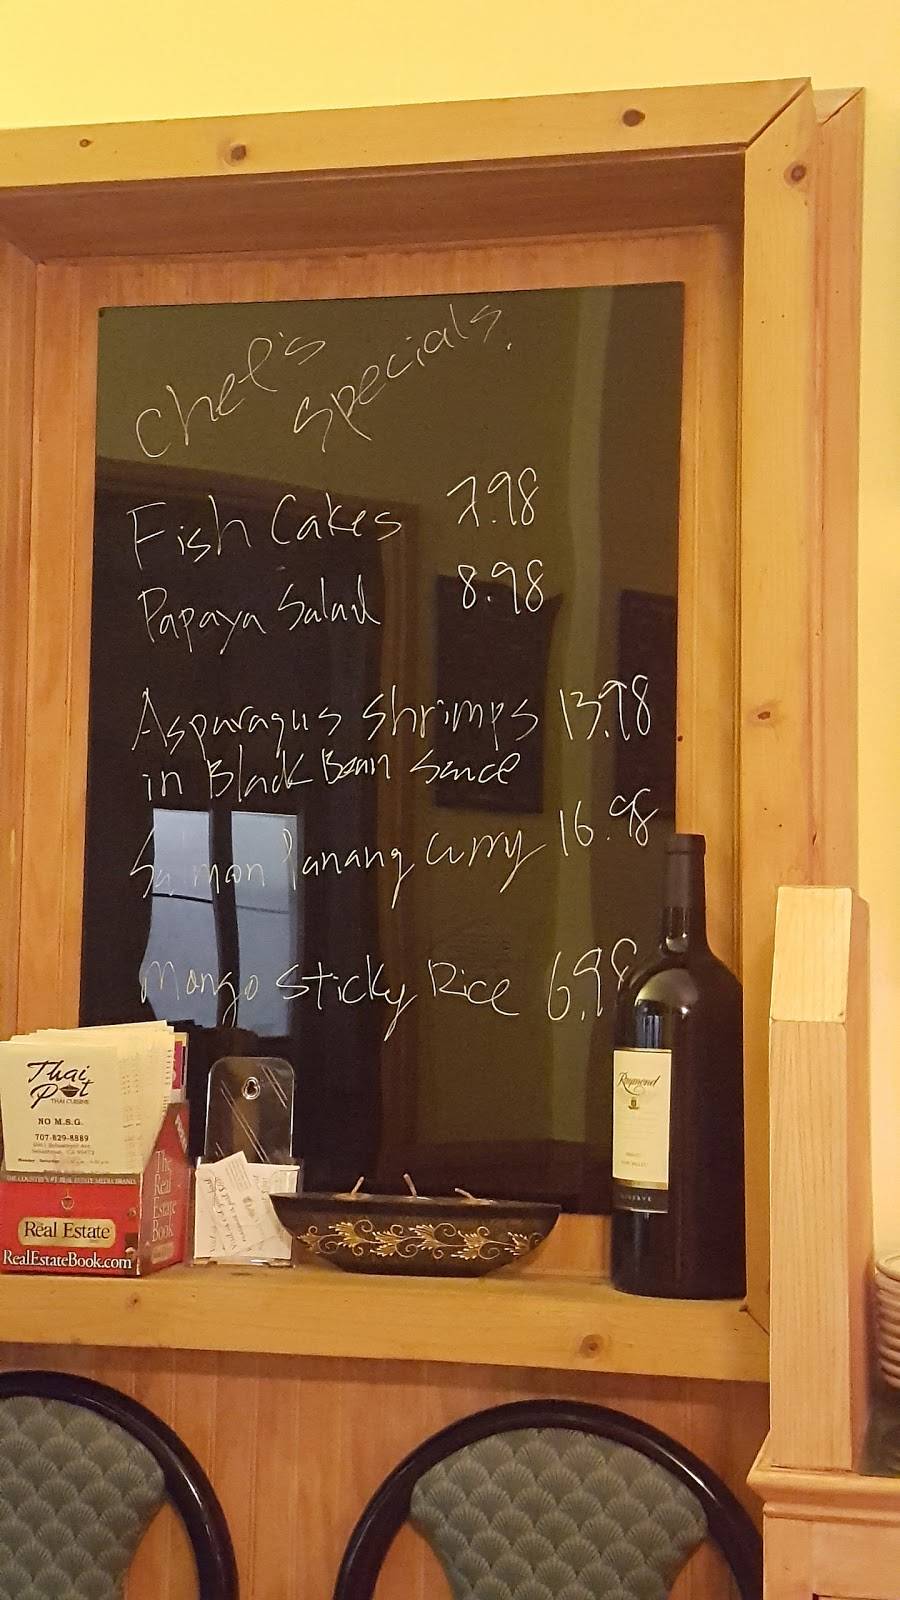 Chef's
Specials.
Fish Cakes 7.98
Papaya Salad 8.98
Asparagus Shrimps 13.98
in Black Bean Sauce
Salmon Panang Curry 16.98
Mango Sticky Rice 6.98
Thai
Pot
THAI CUISINE
NO M.S.G.
707-829-8889
THE COUNTRY'S #1 REAL ESTATE MEDIA BRAND
The Real Estate
RealEstateBook.com
The
Real
Estate
Book
Raymond
RESERVE